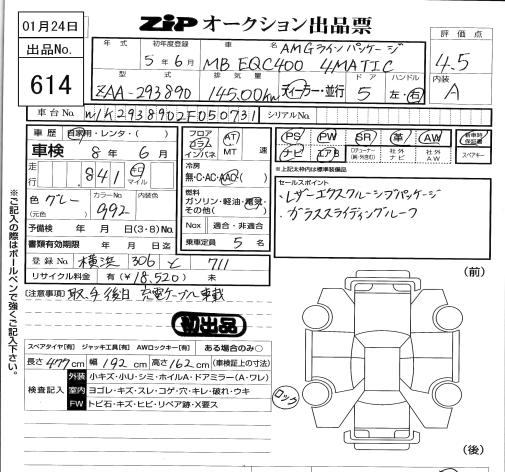 01月24日
ZiP オークション出品票
出品No.
614
年式
初年度登録
5年6月
車名
AMGラインパッケージ
MB EQC400 4MATIC
評価点
4.5
型式
ZAA-293890
排気量
145.00kw
ディーラー・並行
ドア
5
ハンドル
左・右
内装
A
車台No.
W1K2938902F050731
シリアルNo.
車歴 自家用・レンタ・( )
車検 8年6月
走行 841 キロ マイル
色 グレー
(元色)
カラーNo.
992
内装色
予備検 年 月 日(3・6)No.
書類有効期限 年 月 日迄
登録No. 横浜 306 と 711
リサイクル料金 有(¥18,520) 未
フロア コラム インパネ
AT MT 速
冷房
無・C・AC・AAC
燃料
ガソリン・軽油・電気
その他( )
Nox 適合・非適合
乗車定員 5 名
PS PW SR 革 AW
ナビ エアB
社外ナビ
社外AW
新車時保証書
スペアキー
※上記太枠内は標準装備品
セールスポイント
・レザーエクスクルーシブパッケージ
・ガラススライディングルーフ
(注意事項) 取、手後日 充電ケーブル車載
初出品
スペアタイヤ[有] ジャッキ工具[有] AWロックキー[有] ある場合のみ○
長さ 477cm 幅 192cm 高さ 162cm (車検証上の寸法)
検査記入
外装 小キズ・小U・シミ・ホイルA・ドアミラー(A・ワレ)
室内 ヨゴレ・キズ・スレ・コゲ・穴・キレ・破れ・ウキ
FW トビ石・キズ・ヒビ・リペア跡・X要ス
(前)
ロック
(後)
※ご記入の際はボールペンで強くご記入下さい。